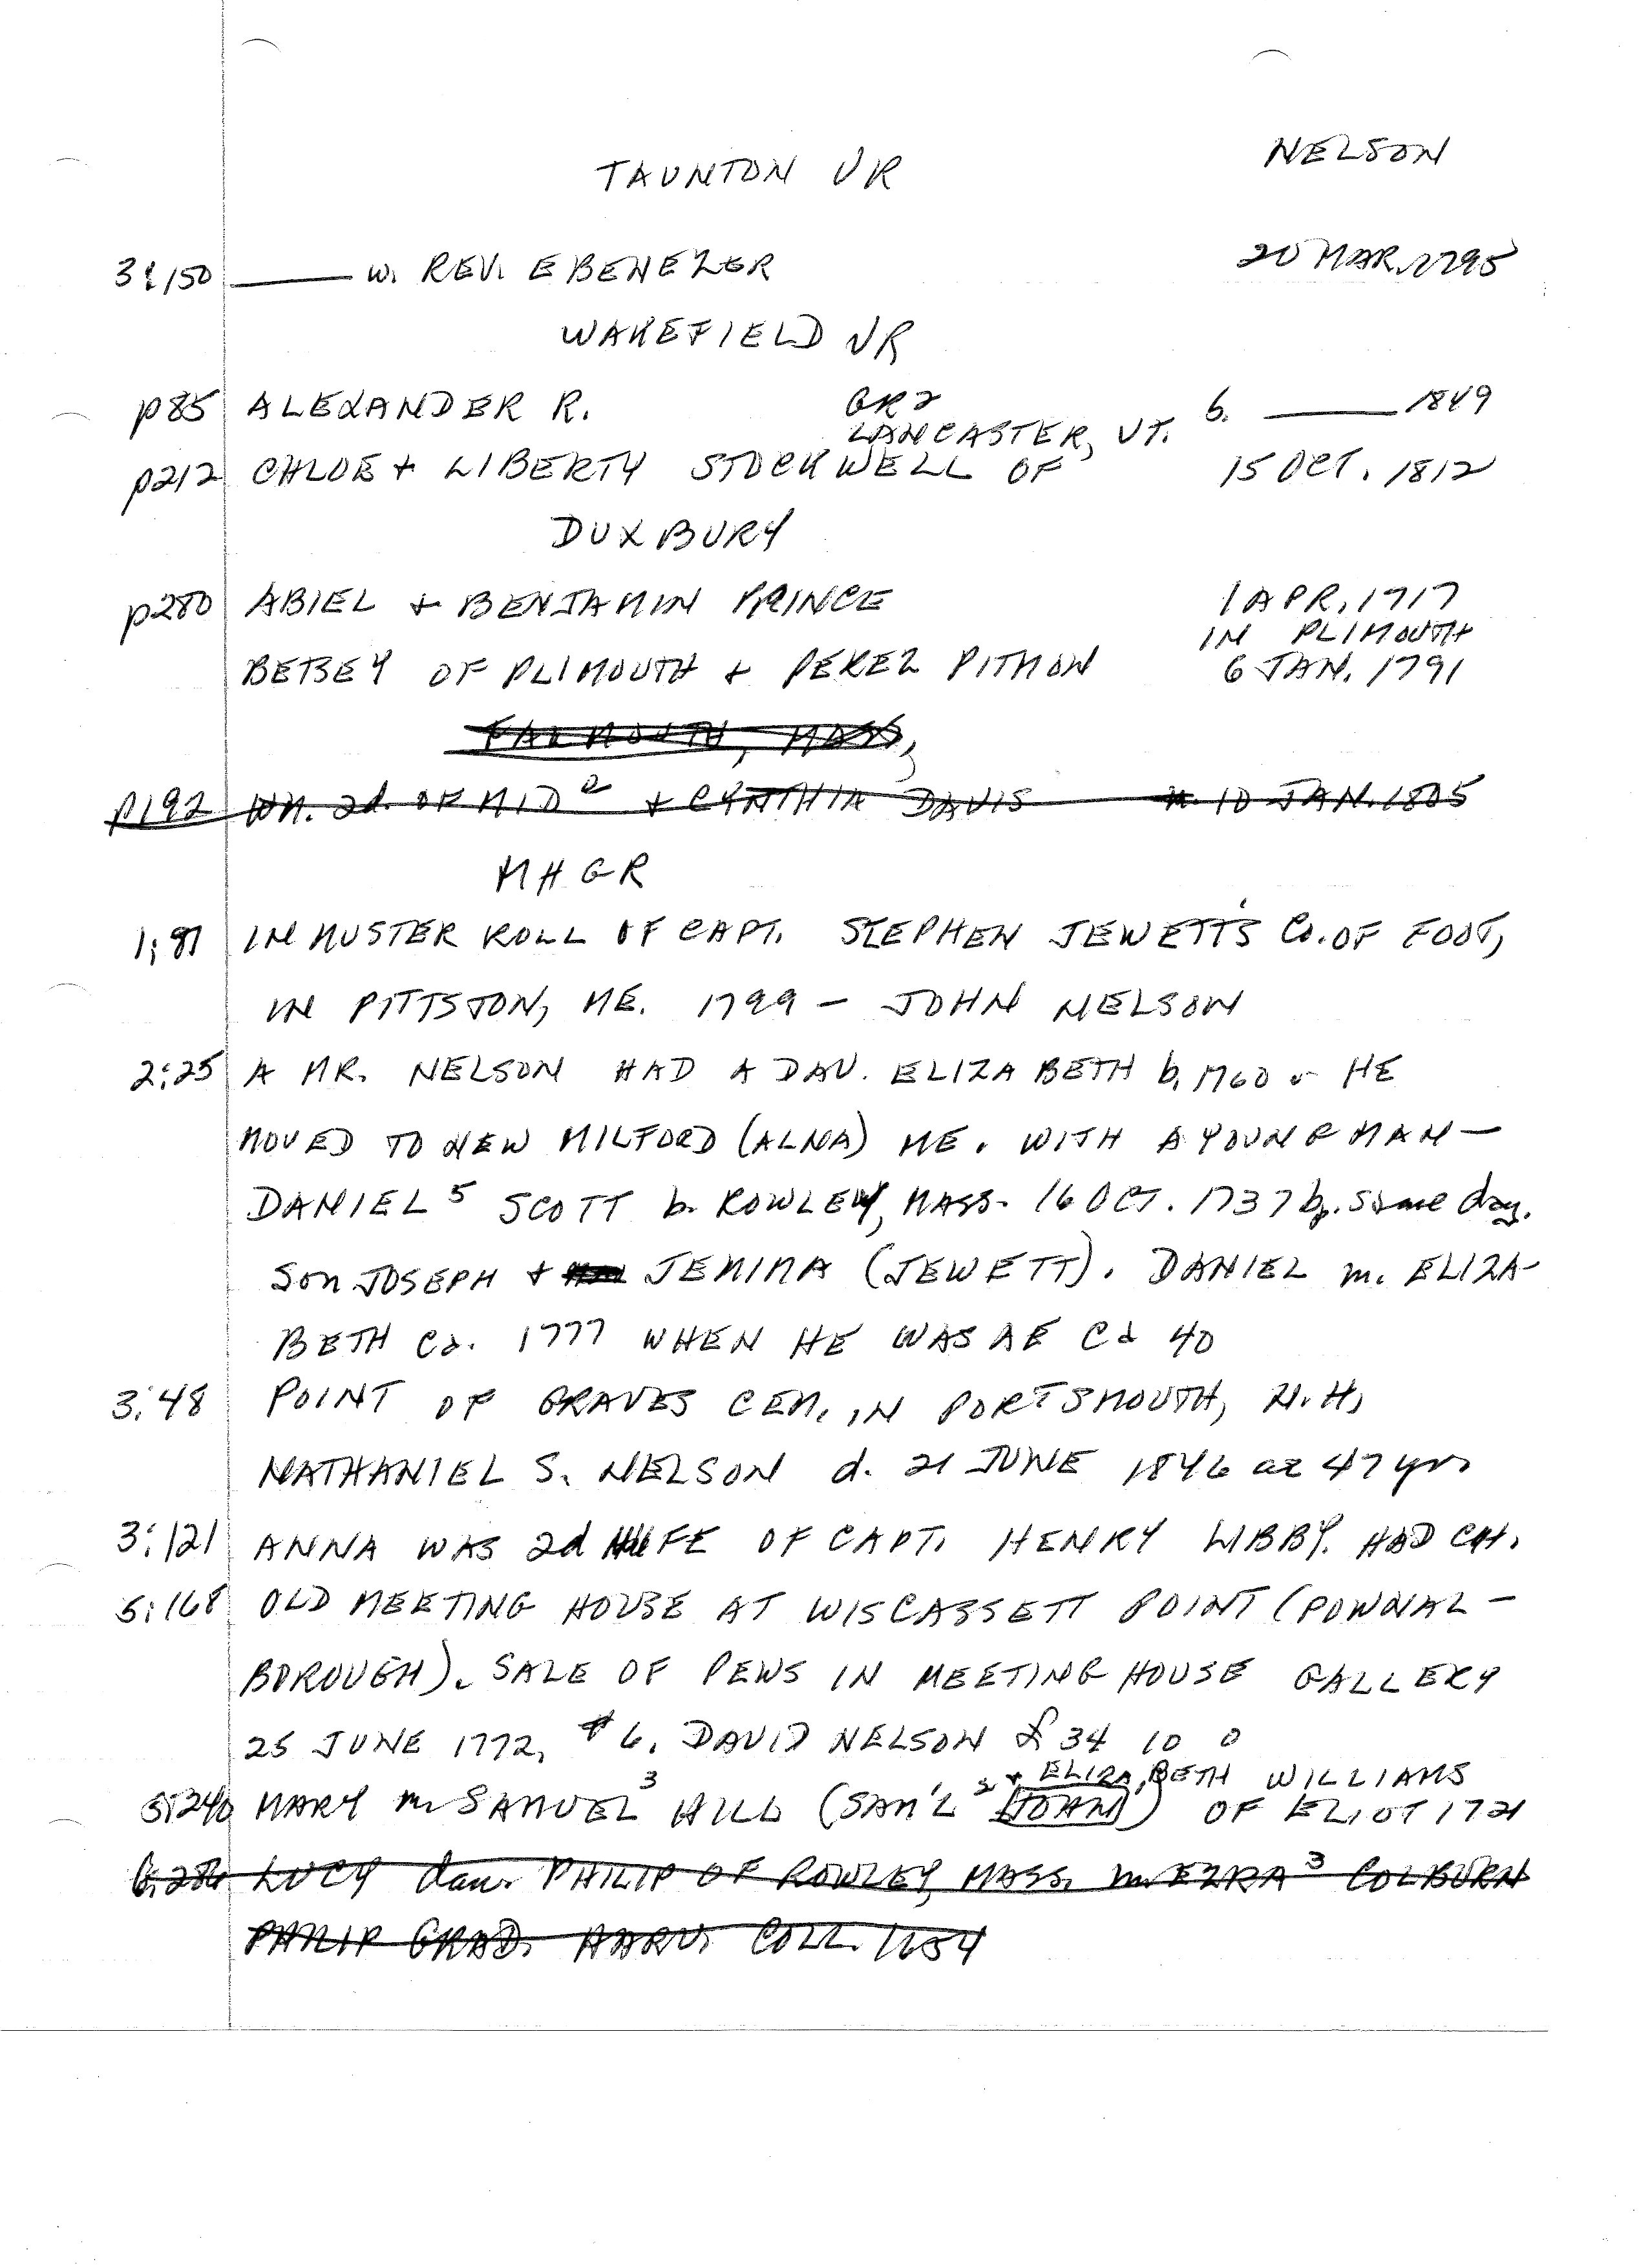 NELSON
TAUNTON VR
3:150 ——— w. REV. EBENEZER 20 MAR. 1795
WAKEFIELD VR
p85 ALEXANDER R. GR2 b. ——— 1849
LANCASTER, VT.
p212 CHLOE + LIBERTY STOCKWELL OF 15 OCT. 1812
DUXBURY
p280 ABIEL + BENJAMIN PRINCE 1 APR. 1717
IN PLIMOUTH
BETSEY OF PLIMOUTH + PEREZ PITMON 6 JAN. 1791
FALMOUTH, MASS,
p192 WM. 2d. OF MID 2 + CYNTHIA DAVIS m. 10 JAN. 1805
MHGR
1:81 IN MUSTER ROLL OF CAPT. STEPHEN JEWETT'S CO. OF FOOT,
IN PITTSTON, ME. 1799 – JOHN NELSON
2:25 A MR. NELSON HAD A DAU. ELIZABETH b. 1760 HE
MOVED TO NEW MILFORD (ALNA) ME. WITH A YOUNG MAN –
DANIEL 5 SCOTT b. ROWLEY, MASS. 16 OCT. 1737 bp. same day.
Son JOSEPH + JEMIMA (JEWETT). DANIEL m. ELIZA-
BETH Ca. 1777 WHEN HE WAS AE Ca 40
3:48 POINT OF GRAVES CEM. IN PORTSMOUTH, N.H.
NATHANIEL S. NELSON d. 21 JUNE 1846 ae 47 yrs
3:121 ANNA WAS 2d WIFE OF CAPT. HENRY LIBBY. HAD CH.
5:168 OLD MEETING HOUSE AT WISCASSETT POINT (POWNAL-
BOROUGH). SALE OF PEWS IN MEETING HOUSE GALLERY
25 JUNE 1772, # 6. DAVID NELSON £ 34 10 0
+ ELIZABETH WILLIAMS
5:240 MARY m SAMUEL 3 HILL (SAM'L 2 JOHN) OF ELIOT 1721
6:286 LUCY dau. PHILIP OF ROWLEY, MASS. m. EZRA 3 COLBURN
PHILIP GRAD. HARV. COLL. 1654